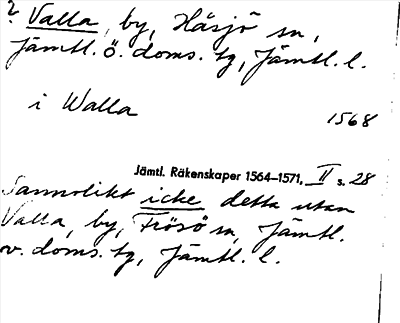 ? Valla, by, Häsjö sn,
Jämtl. ö. doms. tg, Jämtl. l.
i Walla
1568
Jämtl. Räkenskaper 1564–1571, II s. 28
Sannolikt icke detta utan
Valla, by, Frösö sn, Jämtl.
v. doms. tg, Jämtl. l.